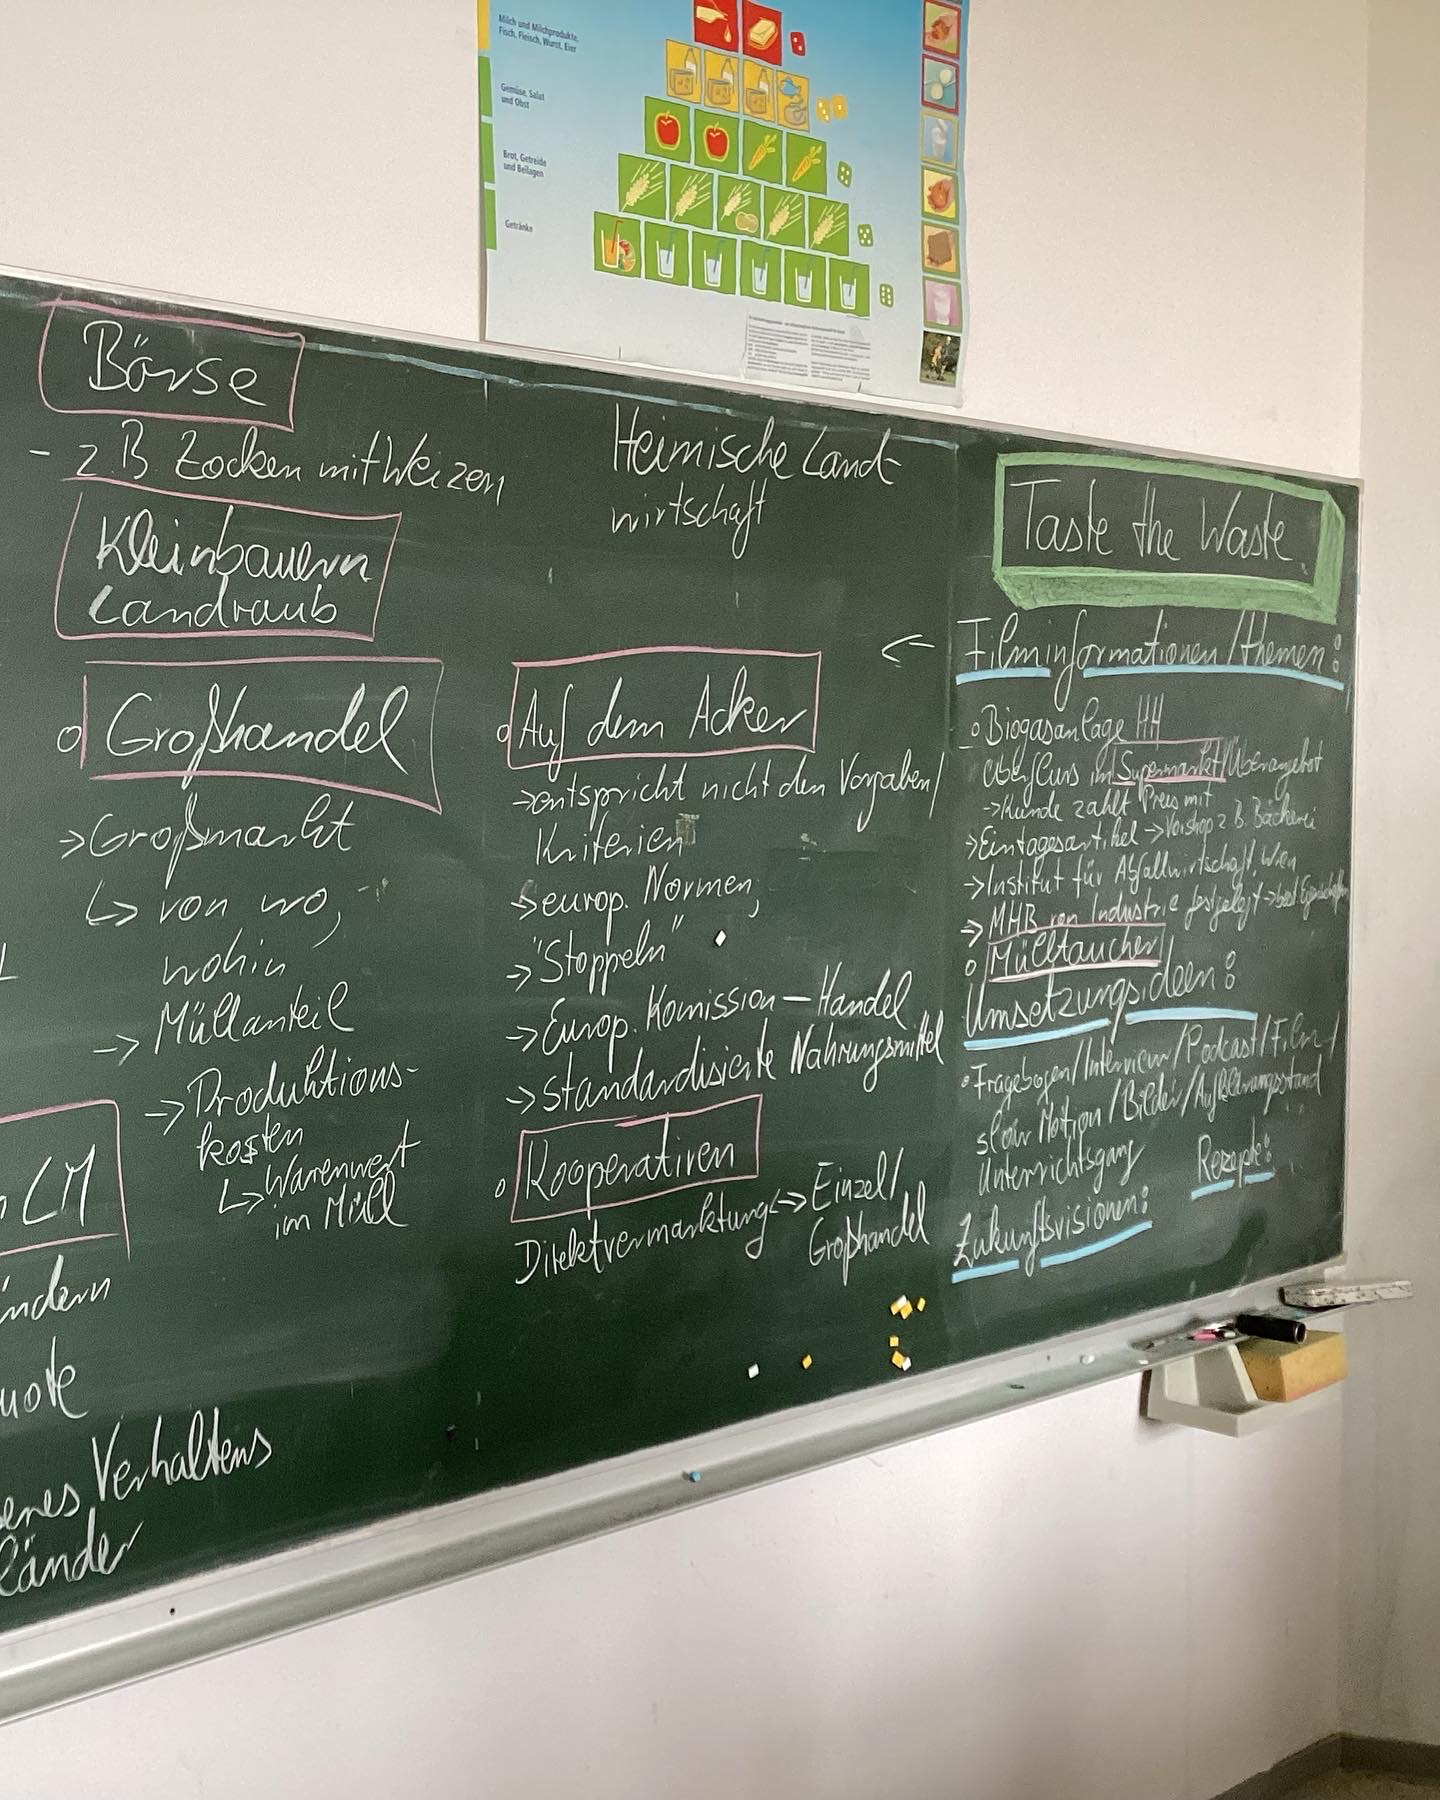 Milch und Milchprodukte,
Fisch, Fleisch, Wurst, Eier
Gemüse, Salat
und Obst
Brot, Getreide
und Beilagen
Getränke
Börse
- z.B. Zocken mit Weizen
Kleinbauern
Landraub
Großhandel
→ Großmarkt
↳ von wo,
wohin
→ Müllanteil
→ Produktions-
kosten
↳ Warenwert
im Müll
CM
ändern
enes Verhaltens
länder
Heimische Land-
wirtschaft
Auf dem Acker
→ entspricht nicht den Vorgaben/
Kriterien
→ europ. Normen,
→ "Stoppeln"
→ Europ. Komission – Handel
→ Standardisierte Nahrungsmittel
Kooperativen
Direktvermarktung <-> Einzel/
Großhandel
Taste the Waste
← Filminformationen/themen:
Biogasanlage HH
- Überfluss im Supermarkt/Überangebot
→ Kunde zahlt Preis mit
→ Eintagesartikel → Vorshop z.B. Bäckerei
→ Institut für Abfallwirtschaft, Wien
→ MHB von Industrie festgelegt → best. Eigenschaften
Mülltaucher
Umsetzungsideen:
Fragebogen/Interview/Podcast/Film/
slow Motion/Bilder/Aufklärungsstand
Unterrichtsgang
Rezepte:
Zukunftsvisionen: